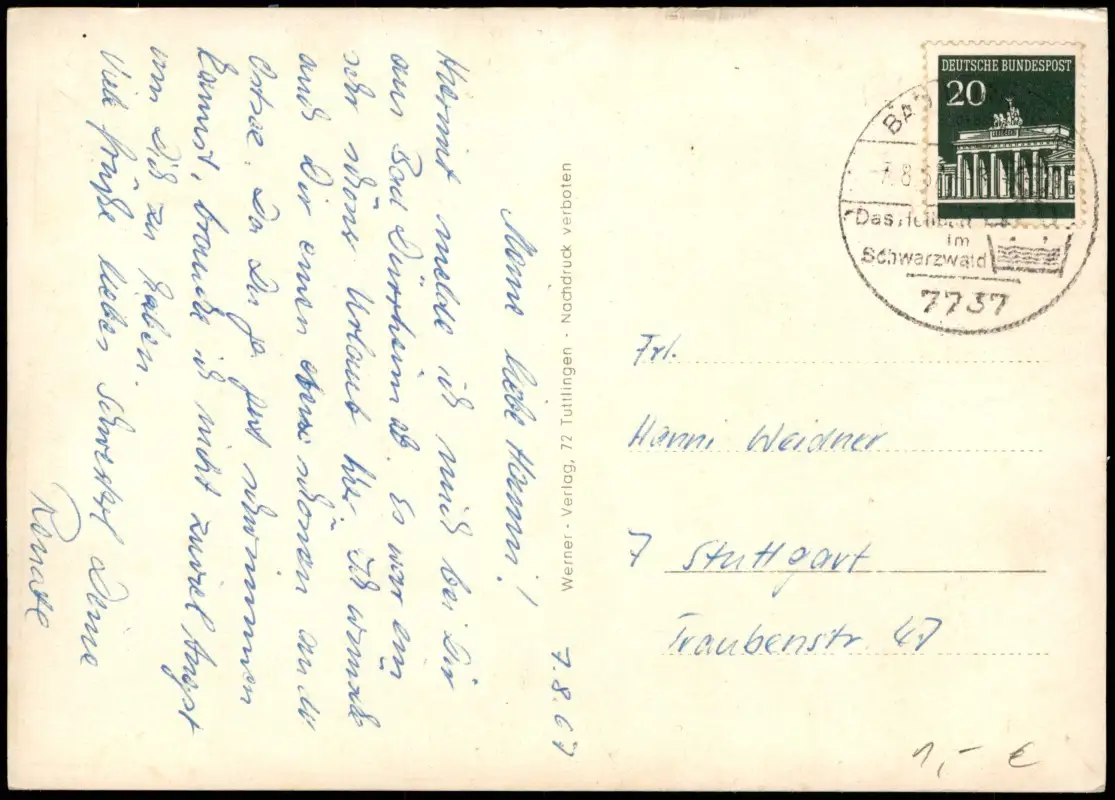 7.8.67
Meine liebe Hanni!
Hiermit melde ich mich bei Dir
aus Bad Dürrheim ab. Es war ein
sehr schöne Urlaub hier. Ich wünsche
auch Dir einen schönen an der
Ostsee. Da Du ja gut schwimmen
kannst, brauche ich nicht zuviel Angst
um Dich zu haben.
Viele Grüße liebes Schwesterl Deine
Renate
Werner - Verlag, 72 Tuttlingen · Nachdruck verboten
DEUTSCHE BUNDESPOST
20
BAD
7.8.6
Das
im
Schwarzwald
7737
Frl.
Hanni Weidner
7 Stuttgart
Traubenstr. 47
1,- €